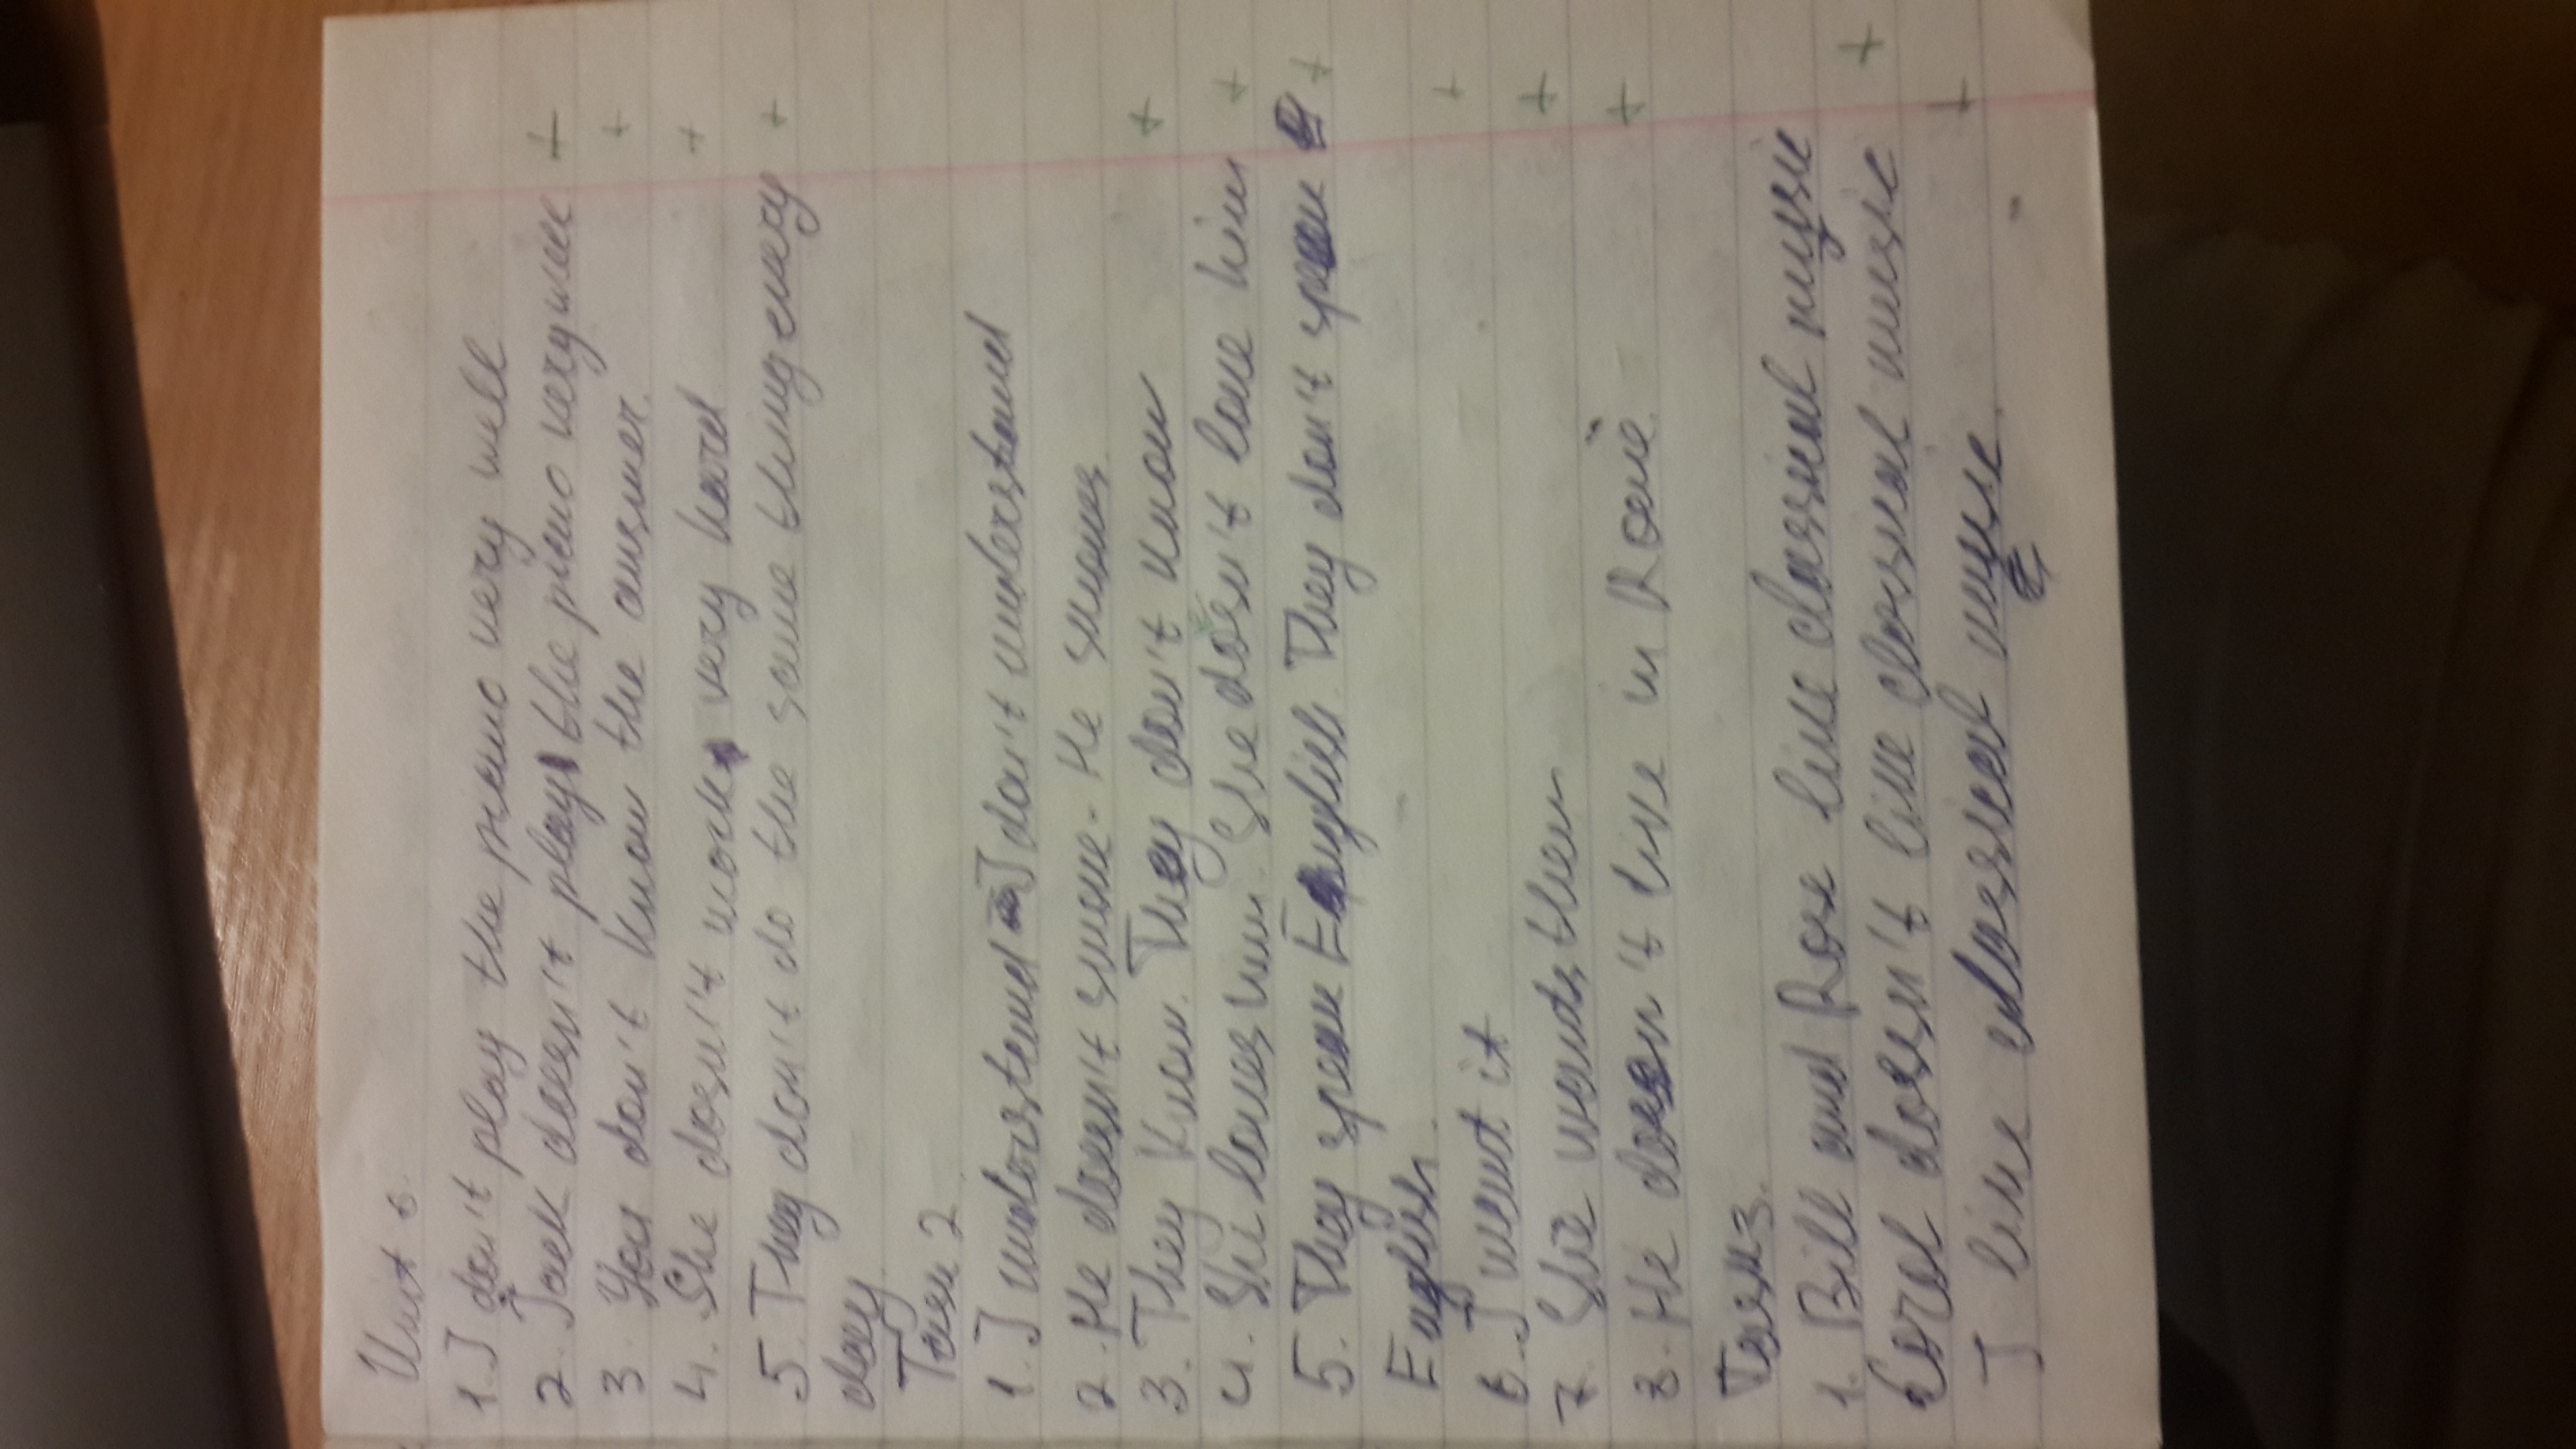 Unit 6.
1. I don't play the piano very well.
2. Jack doesn't play the piano very well +
3. You don't know the answer. +
4. She doesn't work very hard +
5. They don't do the same thing every +
day
Task 2
1. I understand I don't understand
2. He doesn't smoke - He smokes.
3. They know. They don't know +
4. She loves him. She doesn't love him +
5. They speak English. They don't speak +
English.
6. I want it +
7. She wants them +
8. He doesn't live in Rome. +
Task 3.
1. Bill and Rose like classical music
Carol doesn't like classical music +
I like classical music. +